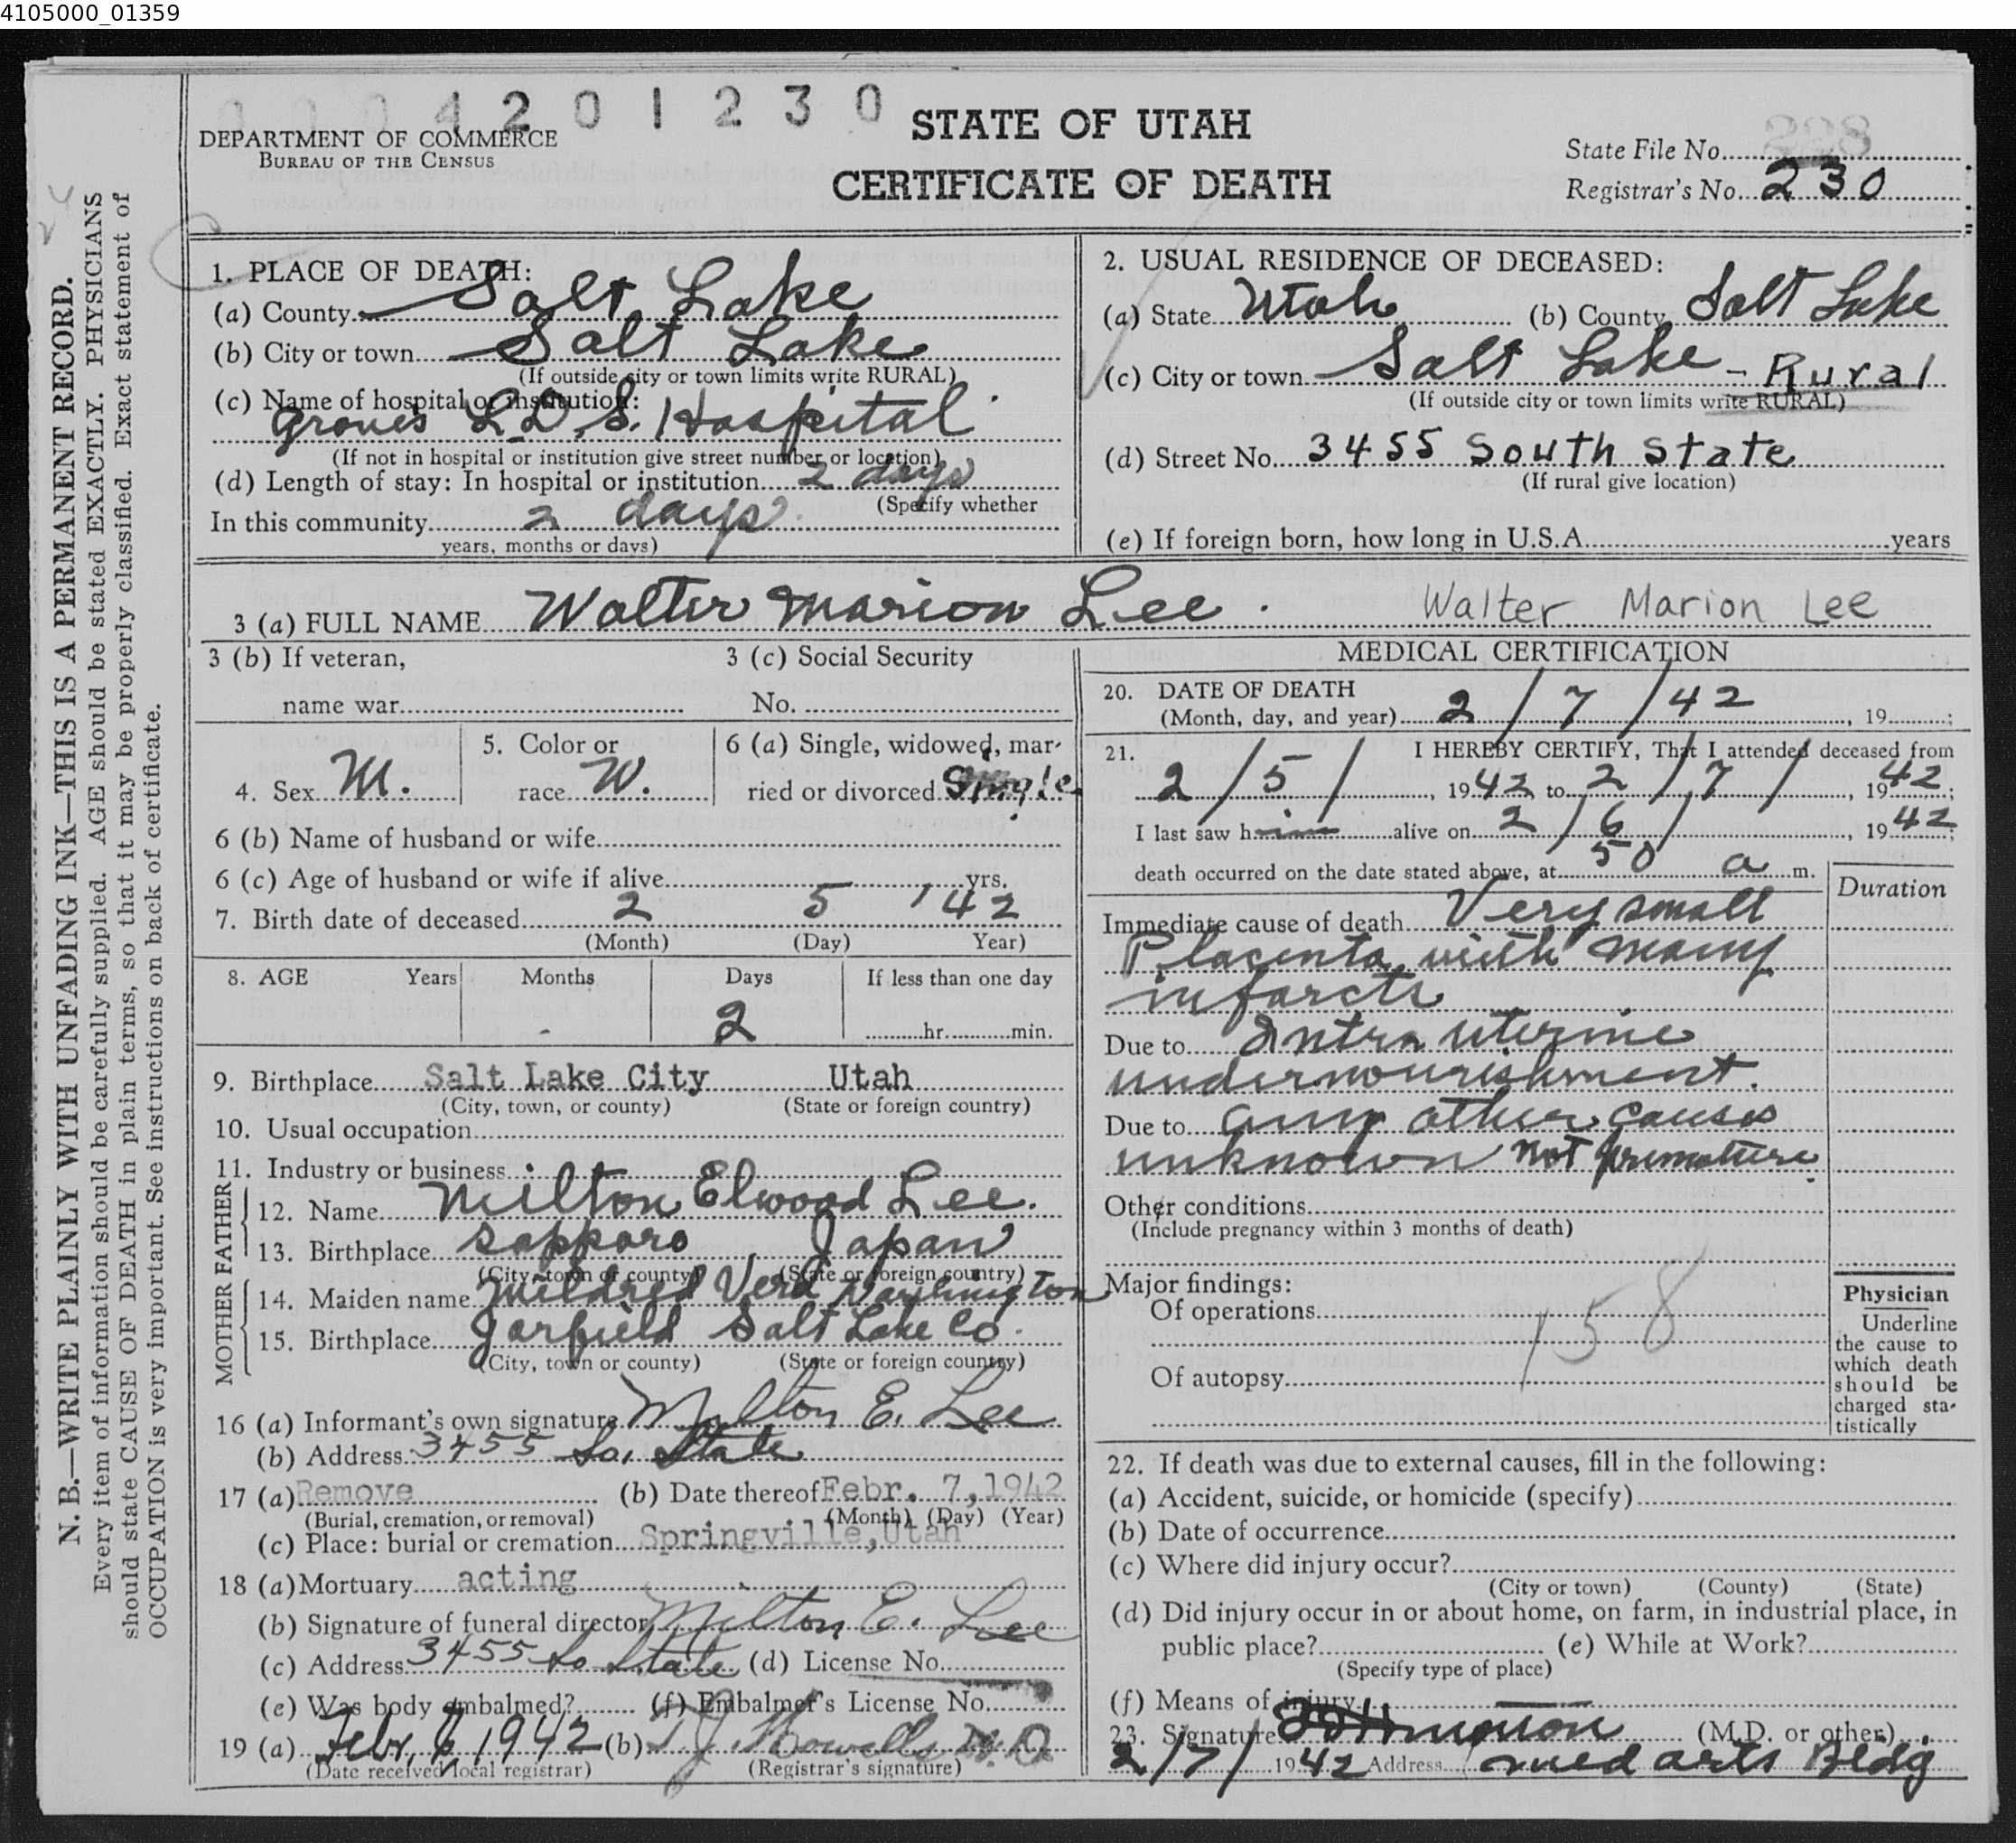 4105000_01359
0 0 0 4 2 0 1 2 3 0
DEPARTMENT OF COMMERCE
BUREAU OF THE CENSUS
STATE OF UTAH
CERTIFICATE OF DEATH
State File No. 228
Registrar's No. 230
N. B.—WRITE PLAINLY WITH UNFADING INK—THIS IS A PERMANENT RECORD.
Every item of information should be carefully supplied. AGE should be stated EXACTLY. PHYSICIANS
should state CAUSE OF DEATH in plain terms, so that it may be properly classified. Exact statement of
OCCUPATION is very important. See instructions on back of certificate.
1. PLACE OF DEATH:
(a) County Salt Lake
(b) City or town Salt Lake
(If outside city or town limits write RURAL)
(c) Name of hospital or institution:
Groves L.D.S. Hospital
(If not in hospital or institution give street number or location)
(d) Length of stay: In hospital or institution 2 days
(Specify whether
In this community 2 days
years, months or days)
2. USUAL RESIDENCE OF DECEASED:
(a) State Utah (b) County Salt Lake
(c) City or town Salt Lake - Rural
(If outside city or town limits write RURAL)
(d) Street No. 3455 South State
(If rural give location)
(e) If foreign born, how long in U.S.A. years
3 (a) FULL NAME Walter Marion Lee. Walter Marion Lee
3 (b) If veteran, name war
3 (c) Social Security No.
4. Sex M.
5. Color or race W.
6 (a) Single, widowed, married or divorced Single
6 (b) Name of husband or wife
6 (c) Age of husband or wife if alive yrs.
7. Birth date of deceased 2 5 '42
(Month) (Day) Year)
8. AGE Years Months Days If less than one day
- 2 hr. min.
9. Birthplace Salt Lake City Utah
(City, town, or county) (State or foreign country)
10. Usual occupation
11. Industry or business
FATHER
12. Name Milton Elwood Lee.
13. Birthplace Sapporo, Japan
(City, town or county) (State or foreign country)
MOTHER
14. Maiden name Mildred Vera
15. Birthplace Garfield Salt Lake Co.
(City, town or county) (State or foreign country)
16 (a) Informant's own signature Milton E. Lee
(b) Address 3455 So. State
17 (a) Remove (b) Date thereof Febr. 7, 1942
(Burial, cremation, or removal) (Month) (Day) (Year)
(c) Place: burial or cremation Springville, Utah
18 (a) Mortuary acting
(b) Signature of funeral director Milton E. Lee
(c) Address 3455 So State (d) License No.
(e) Was body embalmed? (f) Embalmer's License No.
19 (a) Febr. 1942 (b) T J Howells M.D.
(Date received local registrar) (Registrar's signature)
MEDICAL CERTIFICATION
20. DATE OF DEATH
(Month, day, and year) 2/7/42, 19 ;
21. I HEREBY CERTIFY, That I attended deceased from
2/5/, 1942, to 2/7/, 1942;
I last saw him alive on 2/6/, 1942;
death occurred on the date stated above, at 50 a m.
Duration
Immediate cause of death Very small
Placenta with many
infarcts
Due to Intra uterine
undernourishment.
Due to any other causes
unknown Not premature.
Other conditions
(Include pregnancy within 3 months of death)
Major findings:
Of operations
158
Of autopsy
Physician
Underline
the cause to
which death
should be
charged sta-
tistically
22. If death was due to external causes, fill in the following:
(a) Accident, suicide, or homicide (specify)
(b) Date of occurrence
(c) Where did injury occur?
(City or town) (County) (State)
(d) Did injury occur in or about home, on farm, in industrial place, in
public place? (e) While at Work?
(Specify type of place)
(f) Means of injury
23. Signature (M.D. or other)
2/7/ 1942 Address Med arts Bldg